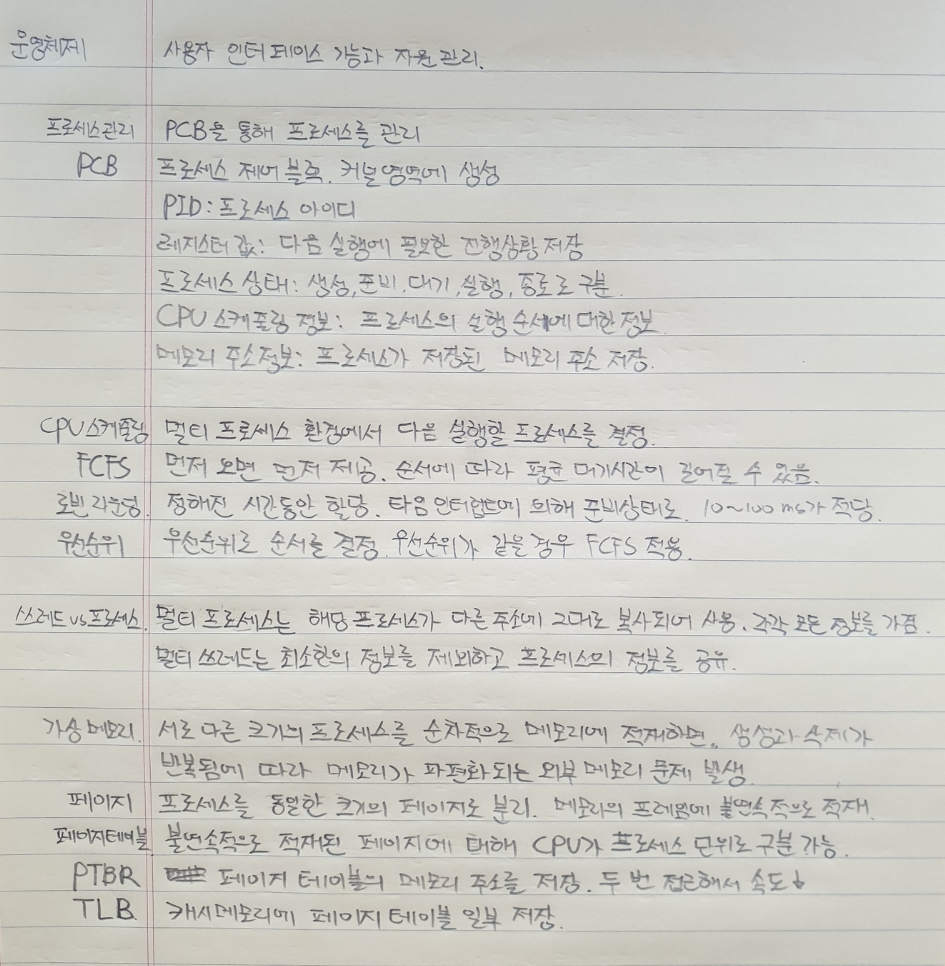 운영체제 사용자 인터페이스 기능과 자원 관리.
프로세스관리 PCB을 통해 프로세스를 관리
PCB 프로세스 제어 블록. 커널영역에 생성
PID: 프로세스 아이디
레지스터 값: 다음 실행에 필요한 진행상황 저장
프로세스 상태: 생성, 준비, 대기, 실행, 종료로 구분.
CPU 스케쥴링 정보: 프로세스의 실행 순세에 대한 정보
메모리 주소정보: 프로세스가 저장된 메모리 주소 저장.
CPU스케쥴링 멀티 프로세스 환경에서 다음 실행할 프로세스를 결정.
FCFS 먼저 오면 먼저 제공. 순서에 따라 평균 대기시간이 길어질 수 있음.
로빈라운딩. 정해진 시간동안 할당. 타임인터럽트에 의해 준비상태로. 10~100ms가 적당.
우선순위 우선순위로 순서를 결정. 우선순위가 같을경우 FCFS 적용.
쓰레드vs프로세스. 멀티 프로세스는 해당프로세스가 다른주소에 그대로 복사되어 사용. 각각 모든 정보를 가짐.
멀티 쓰레드는 최소한의 정보를 제외하고 프로세스의 정보를 공유.
가상메모리. 서로 다른 크기의 프로세스를 순차적으로 메모리에 적재하면, 생성과 삭제가
반복됨에 따라 메모리가 파편화되는 외부 메모리 문제 발생.
페이지 프로세스를 동일한 크기의 페이지로 분리. 메모리의 프레임에 불연속적으로 적재.
페이지테이블 불연속적으로 적재된 페이지에 대해 CPU가 프로세스 단위로 구분 가능.
PTBR 페이지 테이블의 메모리 주소를 저장. 두 번 접근해서 속도↓
TLB 캐시메모리에 페이지 테이블 일부 저장.